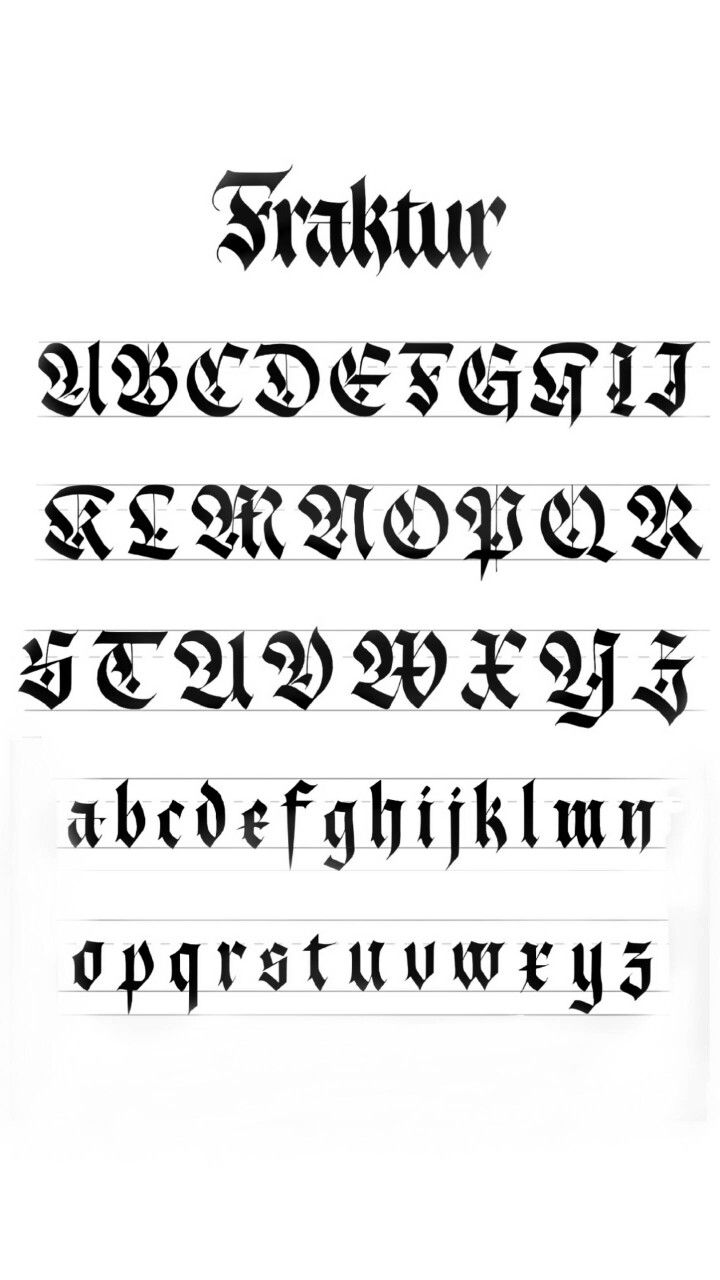 Fraktur
ABCDEFGHIJ
KLMNOPQR
STUVWXYZ
abcdefghijklmn
opqrstuvwxyz